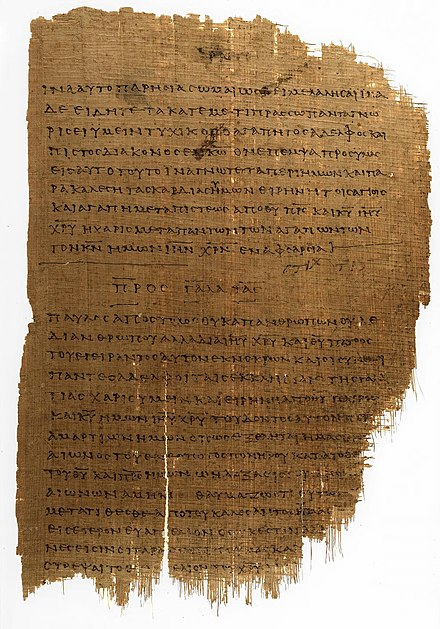 ΙΝΑ ΑΥΤΟ ΠΑΡΗϹΙΑϹΩΜΑΙ ΩϹ ΔΕΙ ΜΕ ΛΑΛΗϹΑΙ ΙΝΑ
ΔΕ ΕΙΔΗΤΕ ΤΑ ΚΑΤ ΕΜΕ ΤΙ ΠΡΑϹϹΩ ΠΑΝΤΑ ΓΝΩ
ΡΙϹΕΙ ΥΜΕΙΝ ΤΥΧΙΚΟϹ Ο ΑΓΑΠΗΤΟϹ ΑΔΕΛΦΟϹ ΚΑΙ
ΠΙϹΤΟϹ ΔΙΑΚΟΝΟϹ ΕΝ Κ̅Ω̅ ΟΝ ΕΠΕΜΨΑ ΠΡΟϹ ΥΜΑϹ
ΕΙϹ ΑΥΤΟ ΤΟΥΤΟ ΙΝΑ ΓΝΩΤΕ ΤΑ ΠΕΡΙ ΗΜΩΝ ΚΑΙ ΠΑ
ΡΑΚΑΛΕϹΗ ΤΑϹ ΚΑΡΔΙΑϹ ΥΜΩΝ ΕΙΡΗΝΗ ΤΟΙϹ ΑΓΙΟΙϹ
ΚΑΙ ΑΓΑΠΗ ΜΕΤΑ ΠΙϹΤΕΩϹ ΑΠΟ Θ̅Υ̅ Π̅Ρ̅Ϲ̅ ΚΑΙ Κ̅Υ̅ Ι̅Η̅Υ̅
Χ̅Ρ̅Υ̅ Η ΧΑΡΙϹ ΜΕΤΑ ΠΑΝΤΩΝ ΤΩΝ ΑΓΑΠΩΝΤΩΝ
ΤΟΝ Κ̅Ν̅ ΗΜΩΝ Ι̅Η̅Ν̅ Χ̅Ρ̅Ν̅ ΕΝ ΑΦΘΑΡϹΙΑ
ϹΤΙΧ
ΠΡΟϹ ΓΑΛΑΤΑϹ
ΠΑΥΛΟϹ ΑΠΟϹΤΟΛΟϹ ΟΥΚ ΑΠ ΑΝΘΡΩΠΩΝ ΟΥΔΕ
ΔΙ ΑΝΘΡΩΠΟΥ ΑΛΛΑ ΔΙΑ Ι̅Η̅Υ̅ Χ̅Ρ̅Υ̅ ΚΑΙ Θ̅Υ̅ Π̅Ρ̅Ο̅Ϲ̅
ΤΟΥ ΕΓΕΙΡΑΝΤΟϹ ΑΥΤΟΝ ΕΚ ΝΕΚΡΩΝ ΚΑΙ ΟΙ ϹΥΝ ΕΜΟΙ
ΠΑΝΤΕϹ ΑΔΕΛΦΟΙ ΤΑΙϹ ΕΚΚΛΗϹΙΑΙϹ ΤΗϹ ΓΑΛΑ
ΤΙΑϹ ΧΑΡΙϹ ΥΜΕΙΝ ΚΑΙ ΕΙΡΗΝΗ ΑΠΟ Θ̅Υ̅ Π̅Ρ̅Ϲ̅
ΚΑΙ Κ̅Υ̅ ΗΜΩΝ Ι̅Η̅Υ̅ Χ̅Ρ̅Υ̅ ΤΟΥ ΔΟΝΤΟϹ ΑΥΤΟΝ ΠΕΡΙ
ΑΜΑΡΤΙΩΝ ΗΜΩΝ ΟΠΩϹ ΕΞΕΛΗΤΑΙ ΗΜΑϹ
ΑΙΩΝΟϹ ΤΟΥ ΕΝΕϹΤΩΤΟϹ ΠΟΝΗΡΟΥ ΚΑΤΑ ΤΟ
ΤΟΥ Θ̅Υ̅ ΚΑΙ Π̅Ρ̅Ϲ̅ ΗΜΩΝ Ω Η ΔΟΞΑ ΕΙϹ
ΑΙΩΝΩΝ ΑΜΗΝ ΘΑΥΜΑΖΩ ΟΤΙ ΟΥΤΩϹ
ΜΕΤΑΤΙΘΕϹΘΕ ΑΠΟ ΤΟΥ ΚΑΛΕϹΑΝΤΟϹ ΥΜΑϹ
ΕΙϹ ΕΤΕΡΟΝ ΕΥΑΓΓΕΛΙΟΝ Ο ΟΥΚ ΕϹΤΙΝ
ΤΙΝΕϹ ΕΙϹΙΝ ΟΙ ΤΑΡΑϹϹΟΝΤΕϹ ΥΜΑϹ ΚΑΙ
ϹΤΡΕΨΑΙ ΤΟ ΕΥΑΓΓΕΛΙΟΝ ΤΟΥ Χ̅Ρ̅Υ̅